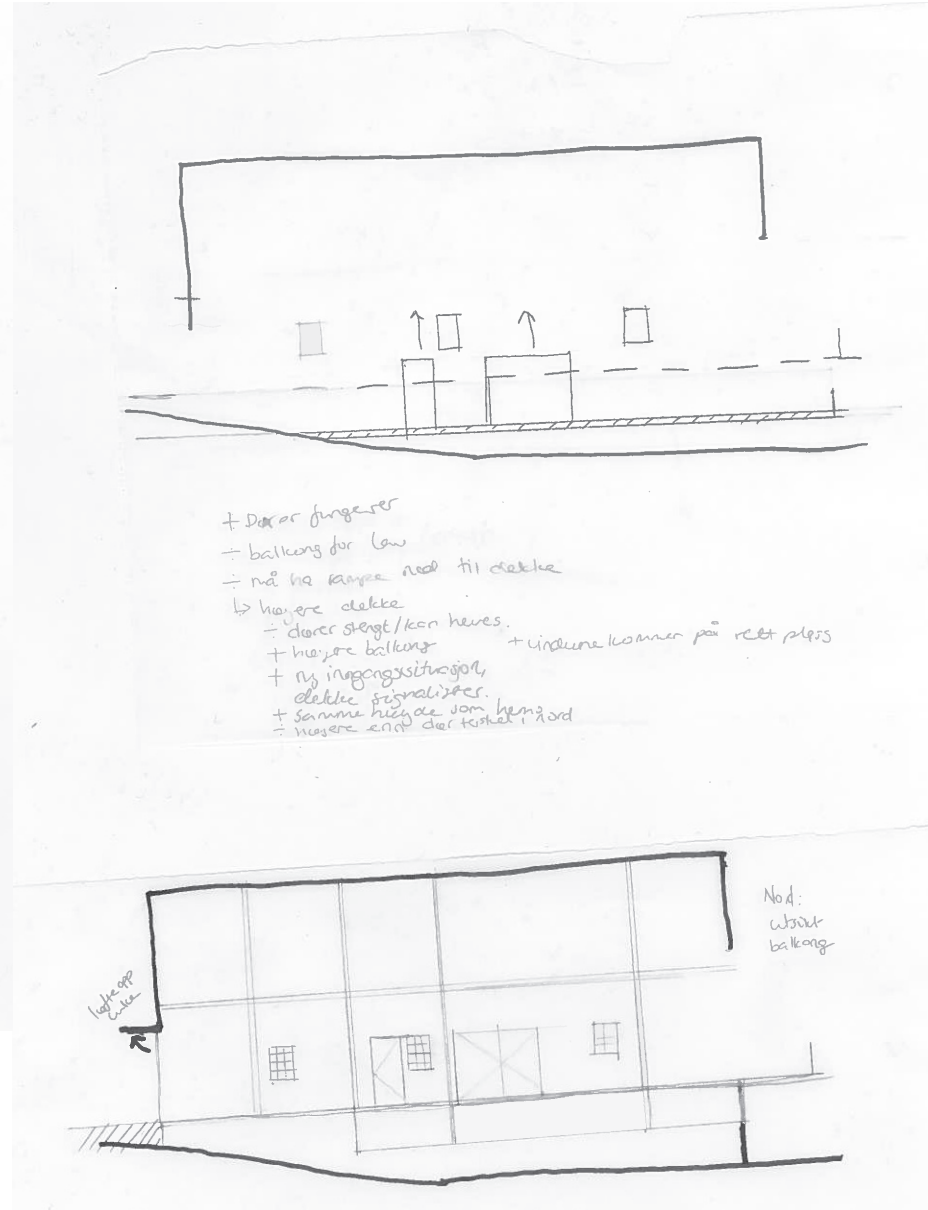 + Dører fungerer
÷ balkong for lav
÷ må ha rampe ned til dekke
↳ høyere dekke
÷ dører stengt/kan heves.
+ høyere balkong
+ vinduene kommer på rett plass
+ ny inngangssituasjon,
dekke signaliserer.
+ samme høyde som hems
÷ høyere enn dør terskel i nord
Nord:
utsikt
balkong
løfte opp